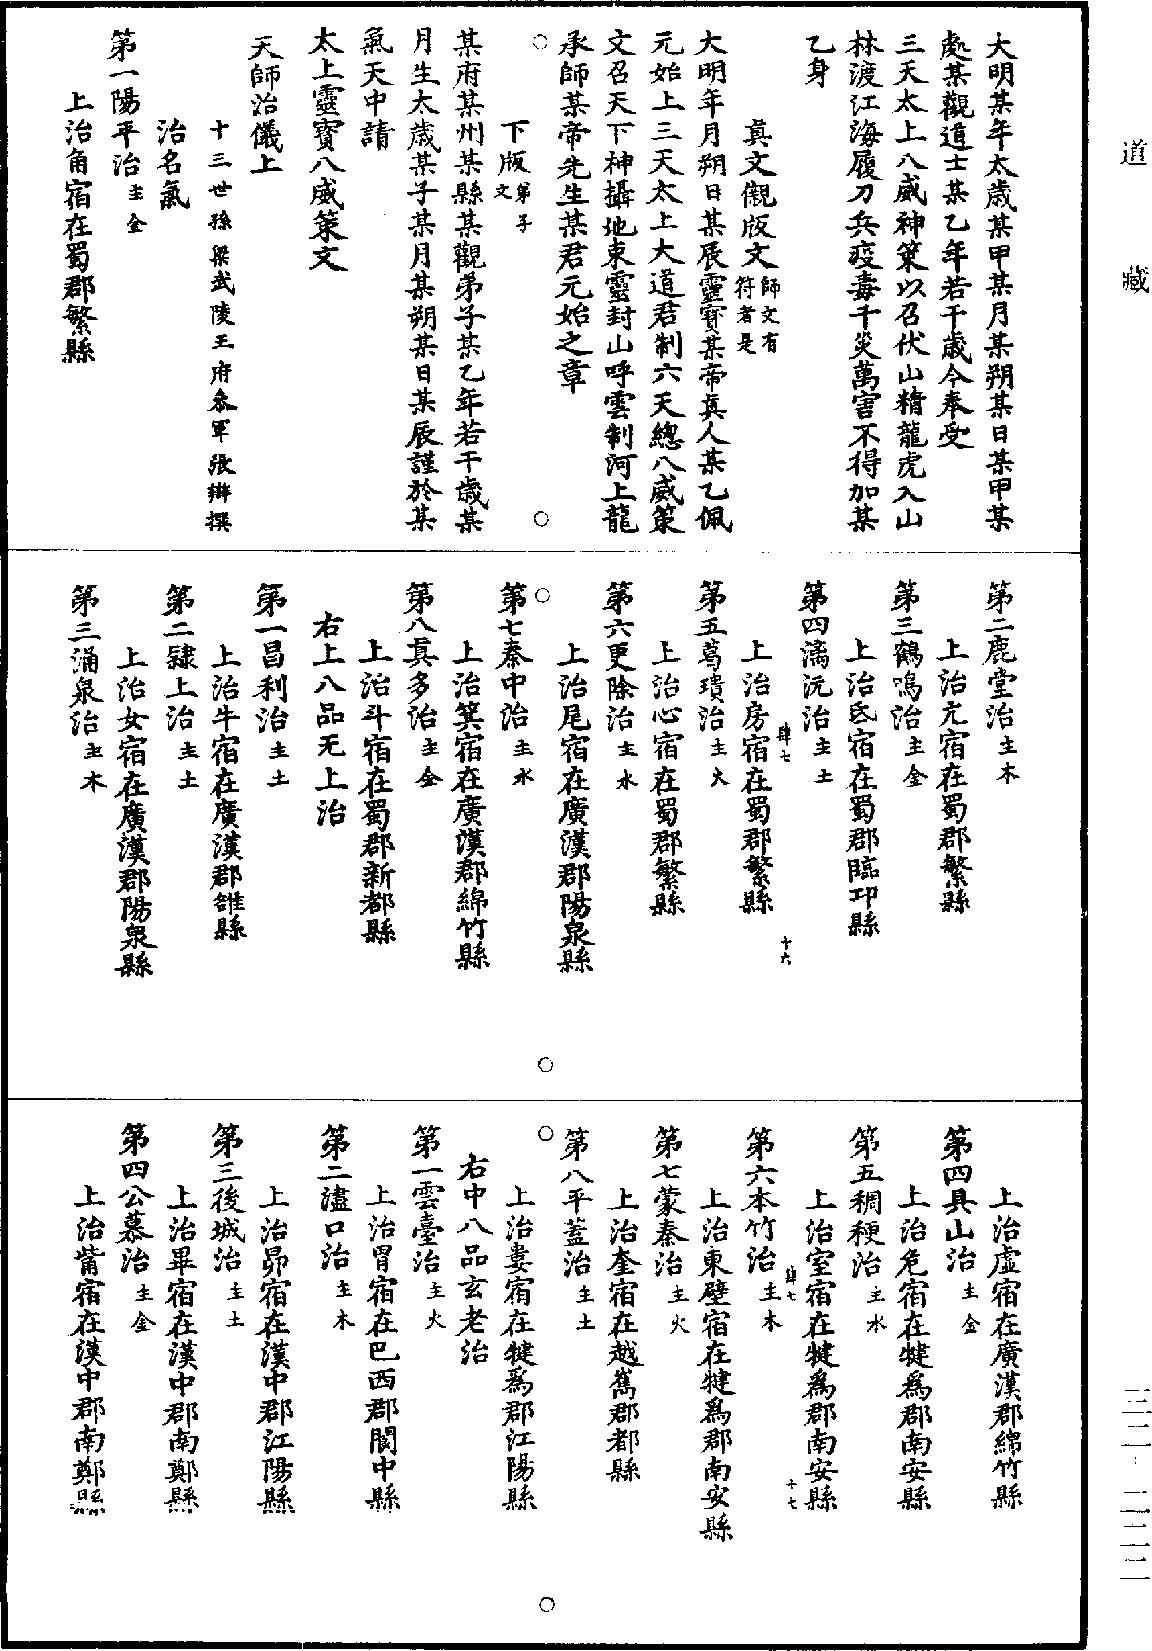 道藏
大明某年太歲某甲某月某朔某日某甲某
處某觀道士某乙年若干歲今奉受
三天太上八威神策以召伏山精龍虎入山
林渡江海履刀兵疫毒千災萬害不得加某
乙身
真文觀版文師文有符者是
大明年月朔日某辰靈寶某帝真人某乙佩
元始上三天太上大道君制六天總八威策
文召天下神攝地束靈封山呼雲制河上龍
承師某帝先生某君元始之章
下版弟子文
某府某州某縣某觀弟子某乙年若干歲某
月生太歲某子某月某朔某日某辰謹於某
氣天中請
太上靈寶八威策文
天師治儀上
十三世孫梁武陵王府參軍張辯撰
治名氣
第一陽平治主金
上治角宿在蜀郡繁縣
第二鹿堂治主木
上治亢宿在蜀郡繁縣
第三鶴鳴治主金
上治氐宿在蜀郡臨邛縣
第四漓沅治主土
肆七 十六
上治房宿在蜀郡繁縣
第五葛璝治主火
上治心宿在蜀郡繁縣
第六更除治主水
上治尾宿在廣漢郡陽泉縣
第七秦中治主水
上治箕宿在廣漢郡綿竹縣
第八真多治主金
上治斗宿在蜀郡新都縣
右上八品无上治
第一昌利治主土
上治牛宿在廣漢郡雒縣
第二隸上治主土
上治女宿在廣漢郡陽泉縣
第三涌泉治主木
上治虛宿在廣漢郡綿竹縣
第四具山治主金
上治危宿在犍為郡南安縣
第五稠稉治主水
上治室宿在犍為郡南安縣
肆七 十七
第六本竹治主木
上治東壁宿在犍為郡南安縣
第七蒙秦治主火
上治奎宿在越嶲郡都縣
第八平蓋治主土
上治婁宿在犍為郡江陽縣
右中八品玄老治
第一雲臺治主火
上治胃宿在巴西郡閬中縣
第二濜口治主木
上治昴宿在漢中郡江陽縣
第三後城治主土
上治畢宿在漢中郡南鄭縣
第四公慕治主金
上治觜宿在漢中郡南鄭縣
三二·二二二